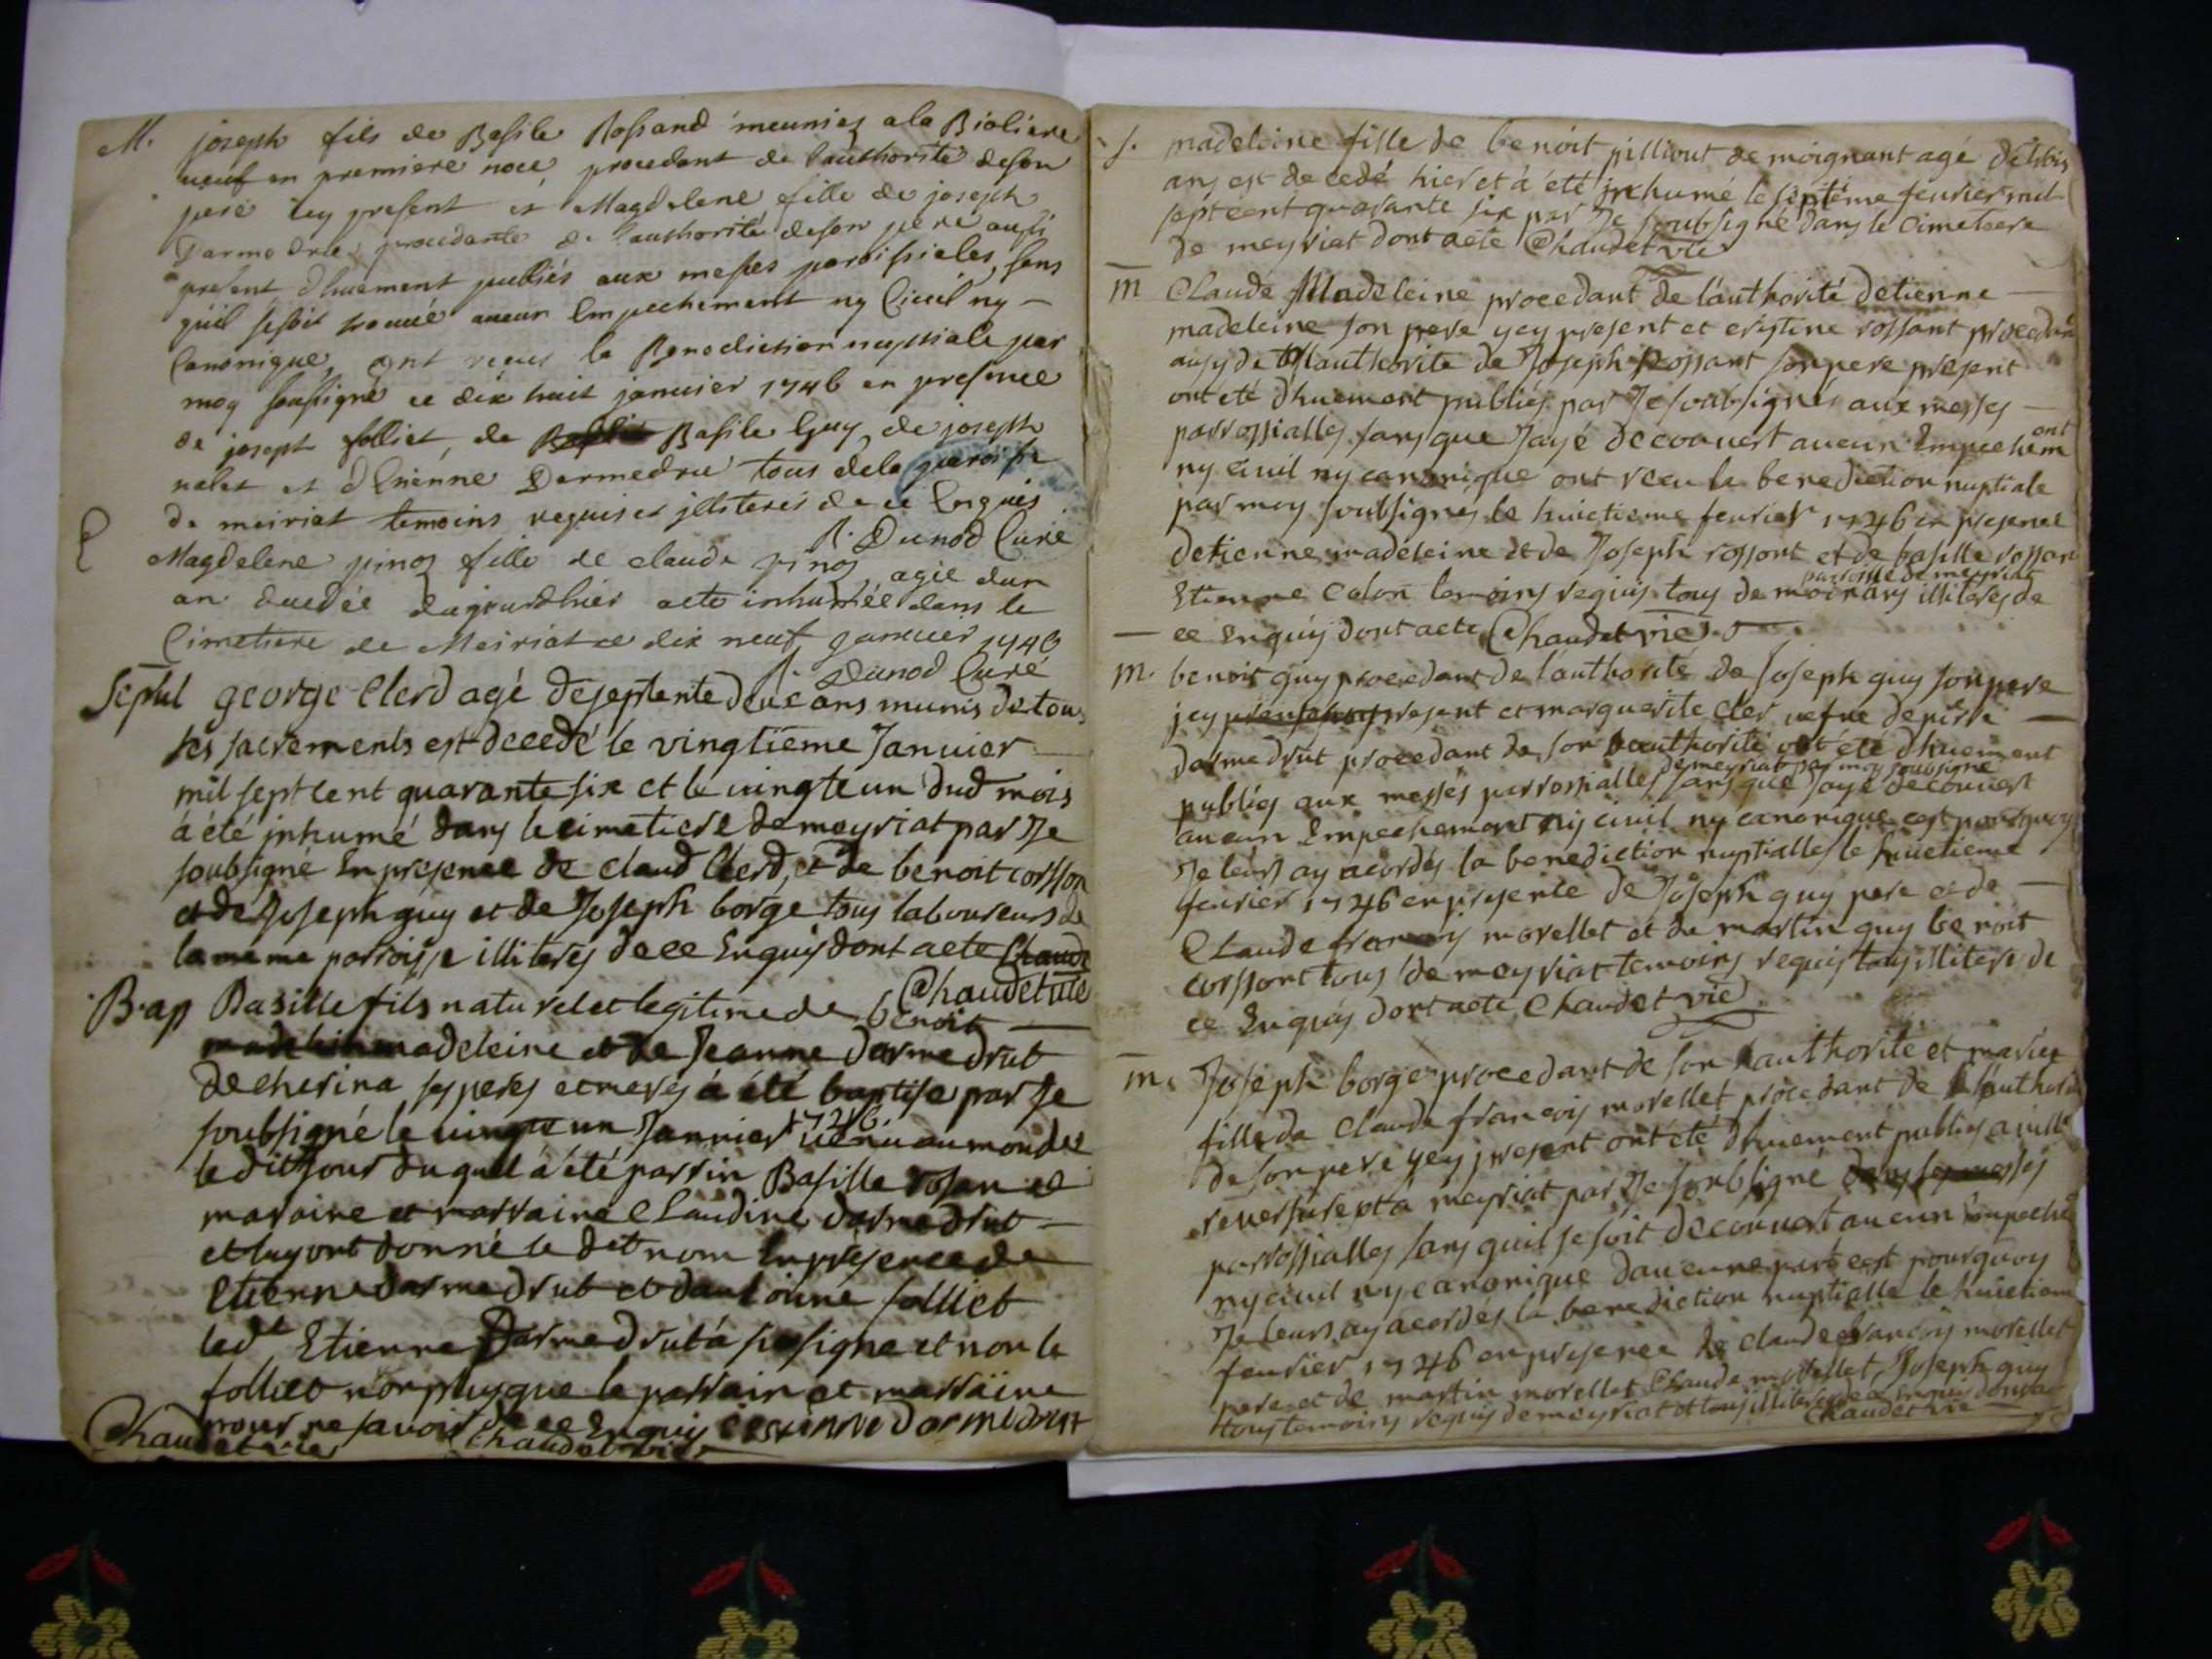 M. joseph fils de Basile Rossand meunier a la Bioliere
veuf en premiere noce procedant de l'authorité de son
pere icy present et Magdelene fille de joseph
Darmedrue procedante de l'authorité de son pere aussi
present dhuement publiés aux messes paroissiales, sans
quil se soit trouvé aucun Empechement ny Civil ny
Canonique, ont receus la Benediction nuptiale par
moy soussigné ce dix huit janvier 1746 en presence
de joseph folliet, de Basile Guy, de joseph
et d'Etienne Darmedru tous de la paroisse
de meiriat temoins requis et illiterés de ce Enquis
R. Dunod Curé
E Magdelene pinoz fille de claude pinoz agée dun
an decedée daujourdhier a ete inhumée dans le
Cimetiere de Meiriat ce dix neuf janvier 1746
R. Dunod Curé
Sepul george Clerd agé de septente deux ans munis de tous
ses sacrements est decedé le vingtieme Januier
mil sept cent quarante six et le uingte un dud mois
á été jnhumé dans le cimetiere de meyriat par Je
soubsigné En presence de claud Clerd, et de benoit corsson
et de Joseph guy et de Joseph borge tous laboureurs de
la meme parroisse illiteres de ce Enquis dont acte Chaude
Chaudet vic
B.ap Basille fils naturel et legitime de benoit
madeleine et de Jeanne darmedrut
de cherina ses peres et meres á été baptise par Je
soubsigné le uingte un Januier 1746 uenu au monde
le dit jour du quel á été parrin Basille rosan et
maraine et marraine Claudine darmedrut
et luy ont donné le dct nom En presence de
Etienne darmedrut et dantoinne folliet
led Etienne Darmedrut á sosigne et non le
folliet non plus que le parrain et marraine
pour ne savoir de ce Enquis estienne darmedrut
Chaudet vic Chaudet vic
s. madeleine fille de benoit pilliout de moignant agé de trois
ans est decedé hier et á été jnhumé le septieme feurier mil
sept cent quarante six par Je soubsigné dans le Cimetiere
de meyriat dont acte Chaudet vic
m Claude Madeleine procedant de l'authorité detienne
madeleine son pere yey present et cristine rossant procedant
ausy de lauthorite de Joseph Rossant son pere present
ont été dhuement publiés par Je soubsignés aux messes
parrossialles sans que Jayé decouuert aucun Empechem
ont
ny ciuil ny canonique ont receu la benediction nuptiale
par moy soubsignés le huictieme feurier 1746 en presence
detienne madeleine et de Joseph rossont et de basille rossan
parroisse de meyriat
Etienne Colon temoins requis tous de moinans illiteres de
ce Enquis dont acte Chaudet vic
m. benoit guy procedant de l'authorite de Joseph guy son pere
jey present et marguerite cler uefue de pierre
darmedrut procedant de son authorité ont été dhuement
de meyriat par moy soubsigné
publiés aux messes parrossialles sans que jaye decouuert
aucun Empechement ny ciuil ny canonique cest pourquoy
Je leurs ay acordés la benediction nuptialles le huictieme
feurier 1746 en presence de Joseph guy pere et de
Claude francois morellet et de martin guy benoit
corssont tous de meyriat temoins requis tous illiteres de
ce Enquis dont acte Chaudet vic
m. Joseph borge procedant de son hauthorité et marie
fille de Claude francois morellet procedant de l'authorite
de son pere yey present ont été dhuement publies a uille
reuersure et a meyriat par Je soubsigné messes
parrossialles sans quil se soit decouuert aucun Empeche
ny ciuil ny canonique daucune part cest pourquoy
Je leurs ay acordés la benediction nuptialle le huictieme
feurier 1746 en presence de claude francois morellet
pere et de martin morellet Claude morellet, Joseph guy
tous temoins requis de meyriat et tous illiteres de ce Enquis dont acte
Chaudet vic